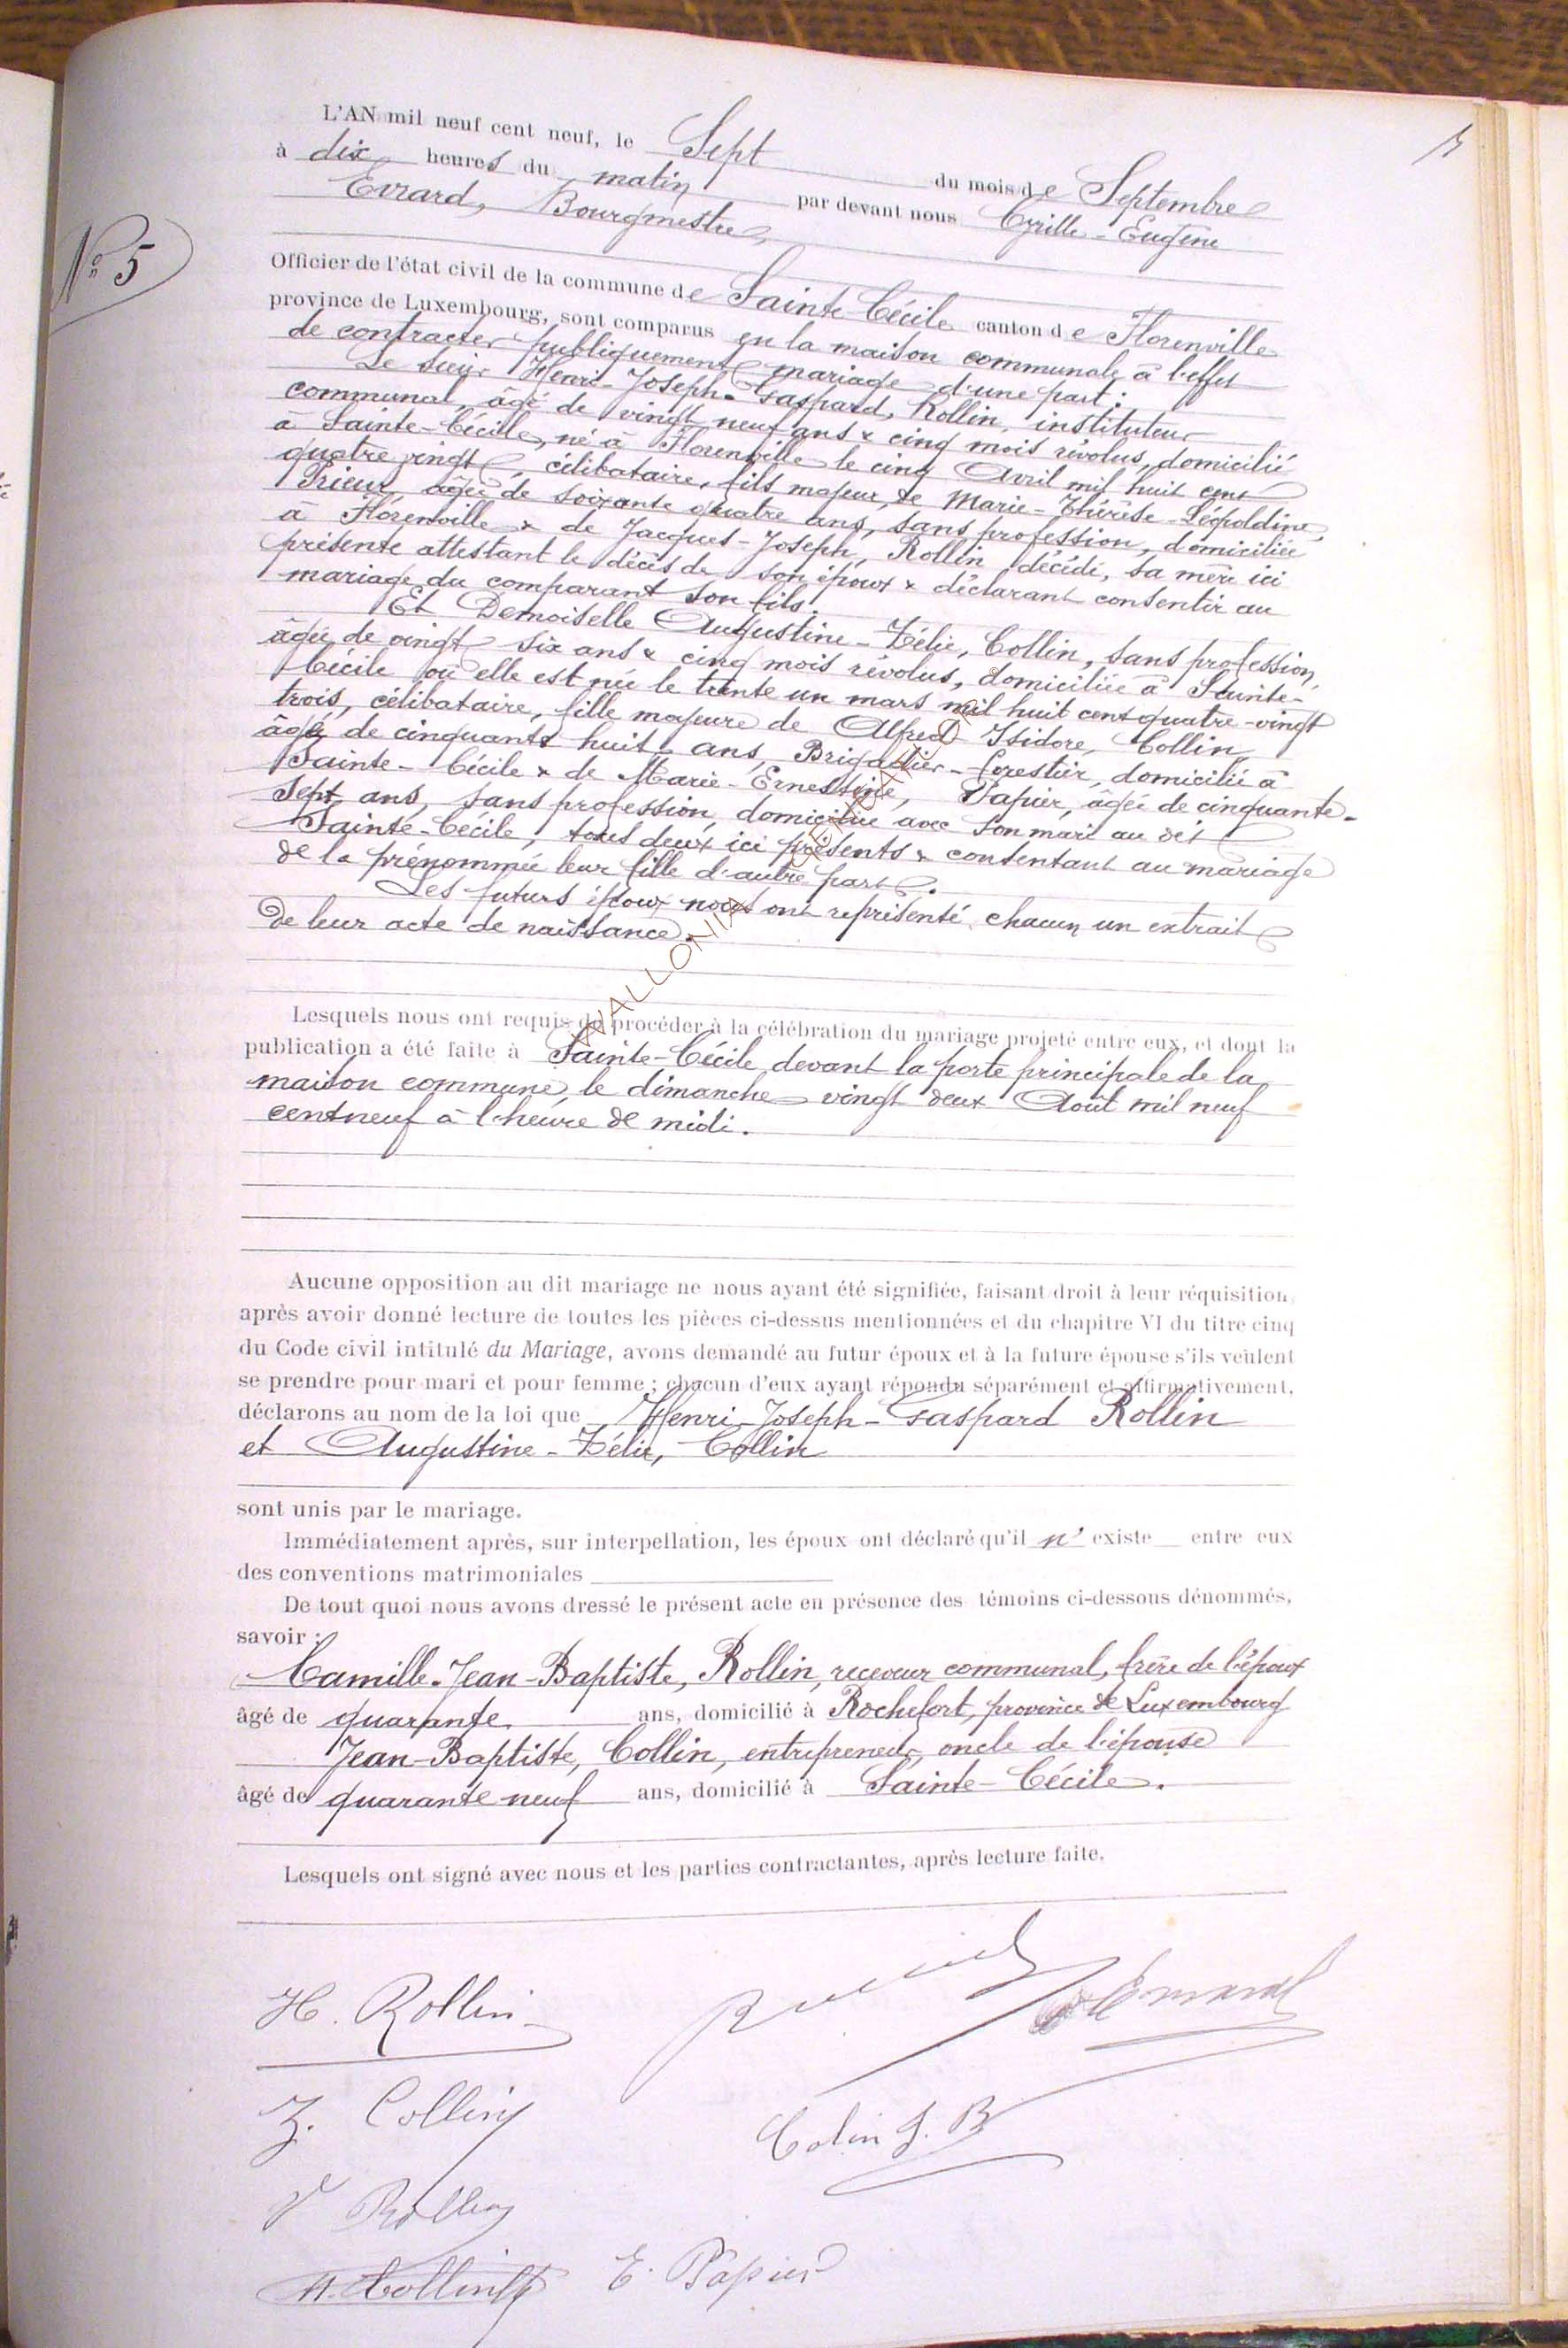 5
L'AN mil neuf cent neuf, le Sept du mois de Septembre
à dix heures du matin par devant nous Cyrille-Eugène
Evrard, Bourgmestre,
N° 5
Officier de l'état civil de la commune de Sainte-Cécile canton de Florenville
province de Luxembourg, sont comparus en la maison communale à l'effet
de contracter publiquement mariage d'une part:
Le sieur Henri-Joseph-Gaspard, Rollin, instituteur
communal, âgé de vingt neuf ans & cinq mois révolus, domicilié
à Sainte-Cécile, né à Florenville le cinq Avril mil huit cent
quatre vingt, célibataire, fils majeur de Marie-Thérèse-Léopoldine,
Prieur, âgée de soixante quatre ans, sans profession, domiciliée
à Florenville & de Jacques-Joseph, Rollin décédé, sa mère ici
présente attestant le décès de son époux & déclarant consentir au
mariage du comparant son fils.
Et Demoiselle Augustine-Zélie, Collin, sans profession,
âgée de vingt six ans & cinq mois révolus, domiciliée à Sainte-
Cécile où elle est née le trente un mars mil huit cent quatre-vingt
trois, célibataire, fille majeure de Alfred Isidore, Collin,
âgé de cinquante huit ans, Brigadier-forestier, domicilié à
Sainte-Cécile & de Marie-Ernestine, Papier, âgée de cinquante-
sept ans, sans profession, domiciliée avec son mari au dit
Sainte-Cécile, tous deux ici présents & consentant au mariage
de la prénommée leur fille d'autre part.
Les futurs époux nous ont représenté chacun un extrait
de leur acte de naissance.
WALLONIA
Lesquels nous ont requis de procéder à la célébration du mariage projeté entre eux, et dont la
publication a été faite à Sainte-Cécile devant la porte principale de la
maison commune, le dimanche vingt deux Août mil neuf
cent neuf à l'heure de midi.
Aucune opposition au dit mariage ne nous ayant été signifiée, faisant droit à leur réquisition,
après avoir donné lecture de toutes les pièces ci-dessus mentionnées et du chapitre VI du titre cinq
du Code civil intitulé du Mariage, avons demandé au futur époux et à la future épouse s'ils veulent
se prendre pour mari et pour femme ; chacun d'eux ayant répondu séparément et affirmativement,
déclarons au nom de la loi que Henri-Joseph-Gaspard Rollin
et Augustine-Zélie, Collin
sont unis par le mariage.
Immédiatement après, sur interpellation, les époux ont déclaré qu'il n' existe entre eux
des conventions matrimoniales
De tout quoi nous avons dressé le présent acte en présence des témoins ci-dessous dénommés,
savoir :
Camille-Jean-Baptiste, Rollin, receveur communal, frère de l'époux
âgé de quarante ans, domicilié à Rochefort, province de Luxembourg
Jean-Baptiste, Collin, entrepreneur, oncle de l'épouse
âgé de quarante neuf ans, domicilié à Sainte-Cécile.
Lesquels ont signé avec nous et les parties contractantes, après lecture faite.
H. Rollin
Z. Collin
Colin J. B
Rollin
A. Collin
E. Papier